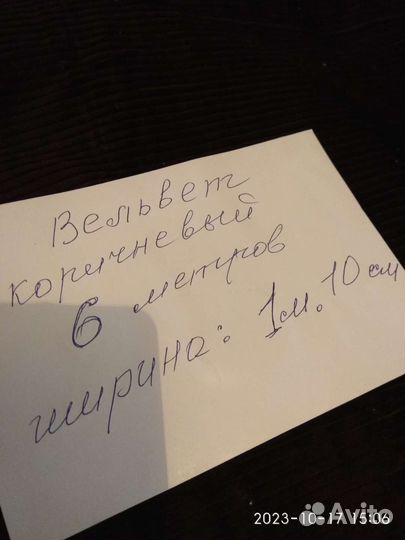 Вельвет
коричневый
6 метров
ширина: 1м. 10 см
2023-10-17 15:06
Avito